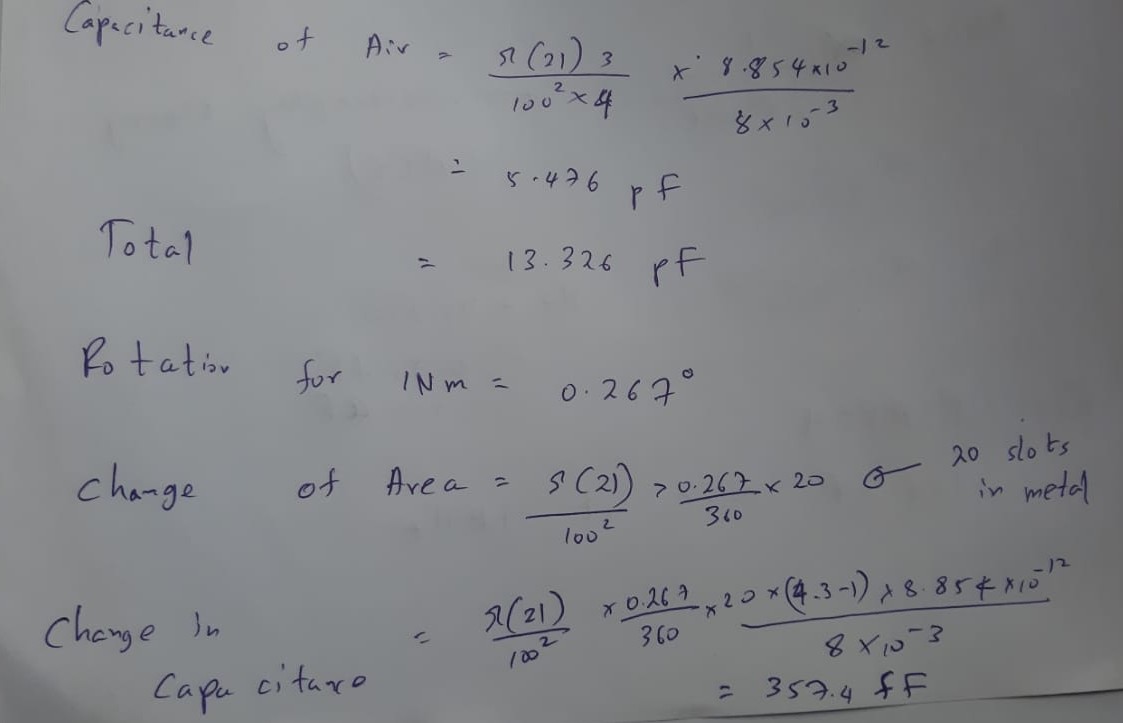 Capacitance of Air = π(21) 3 / 100² × 4 × 8.854×10⁻¹² / 8×10⁻³
= 5.476 pF
Total = 13.326 pF
Rotation for 1Nm = 0.267°
Change of Area = π(21) / 100² × 0.267 / 360 × 20 ← 20 slots in metal
Change In Capacitance = π(21) / 100² × 0.267 / 360 × 20 × (4.3-1) × 8.854×10⁻¹² / 8×10⁻³
= 357.4 fF